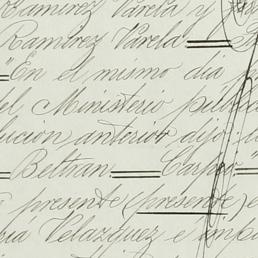 Ramirez Varela y
Ramirez Varela
"En el mismo dia
el Ministerio públ
lucion anterior dijo: l
Beltran Carpio"
presente (presente) e
Velazquez e imp